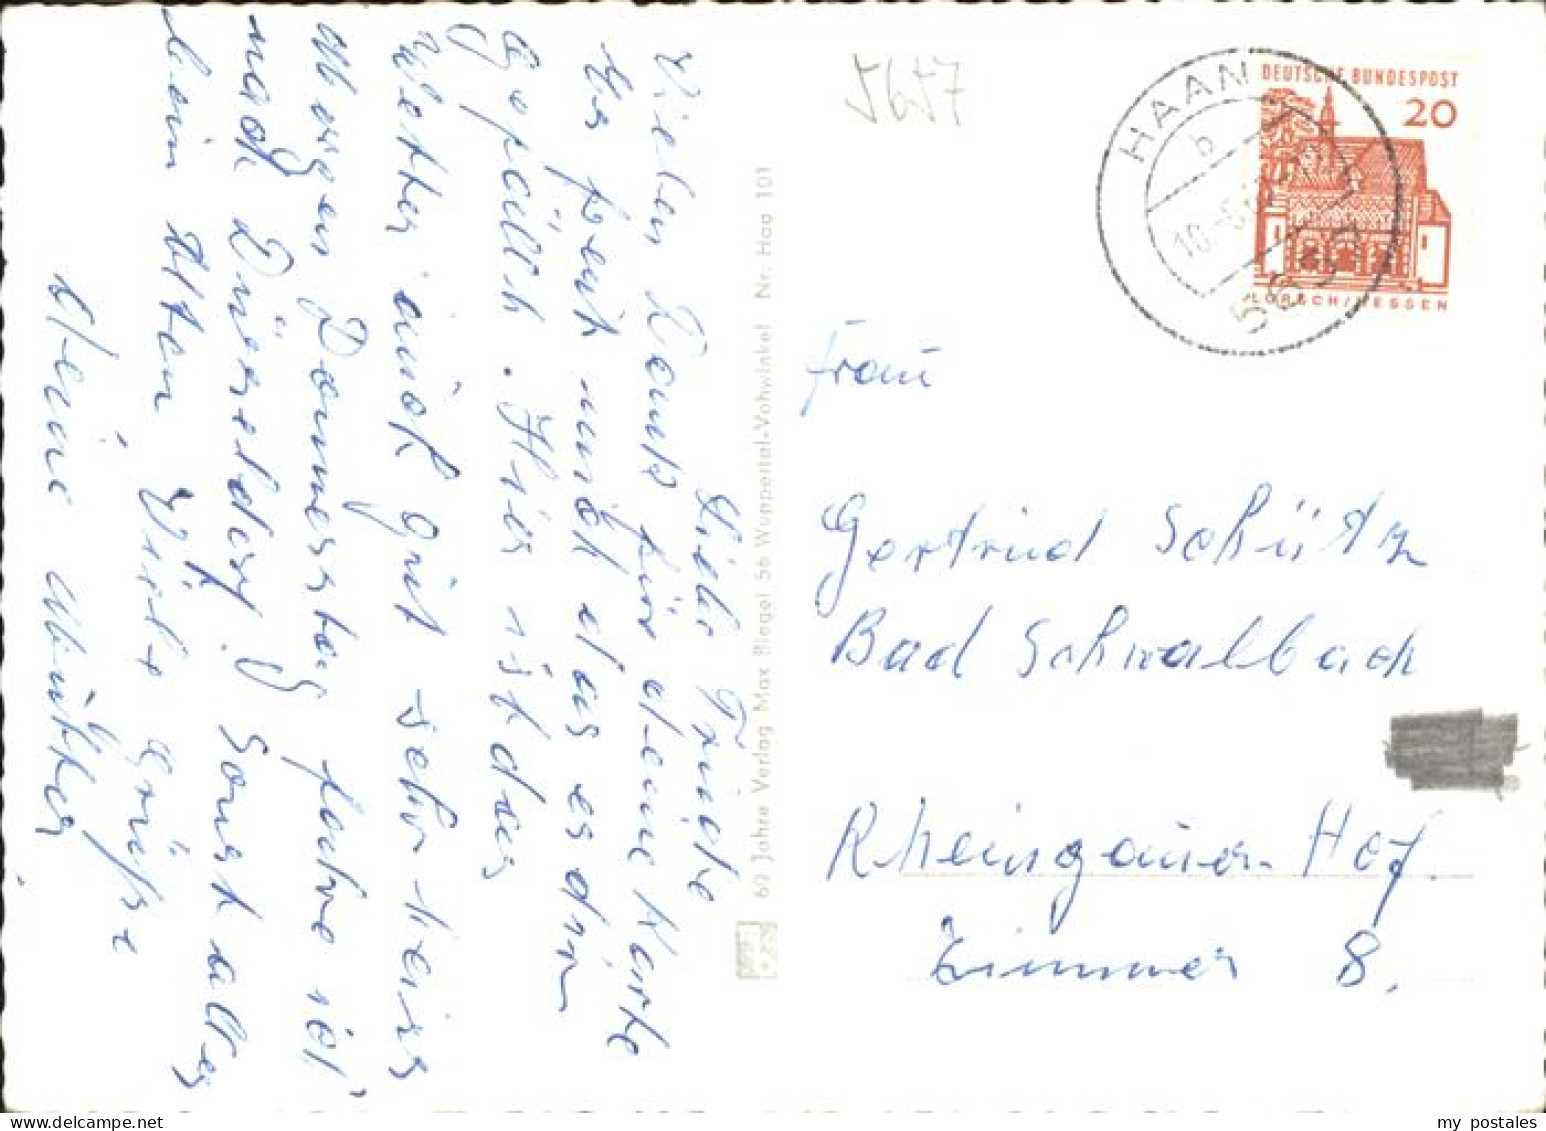 Liebe Trude
Vielen Dank für deine Karte
Es freut mich das es dir
gefällt. Hier ist das
Wetter auch gut sehr heiß
Morgen Donnerstag fahre ich
nach Düsseldorf. Sonst alles
beim Alten. Viele Grüße
deine Mutter.
69 Jahre Verlag Max Biegel 56 Wuppertal-Vohwinkel Nr. Haa 101
5657
HAAN
b
10.-8.
5657
DEUTSCHE BUNDESPOST
20
LORSCH/HESSEN
Frau
Gertrud Schütz
Bad Schwalbach
Rheingauer-Hof.
Zimmer 8.
my postales